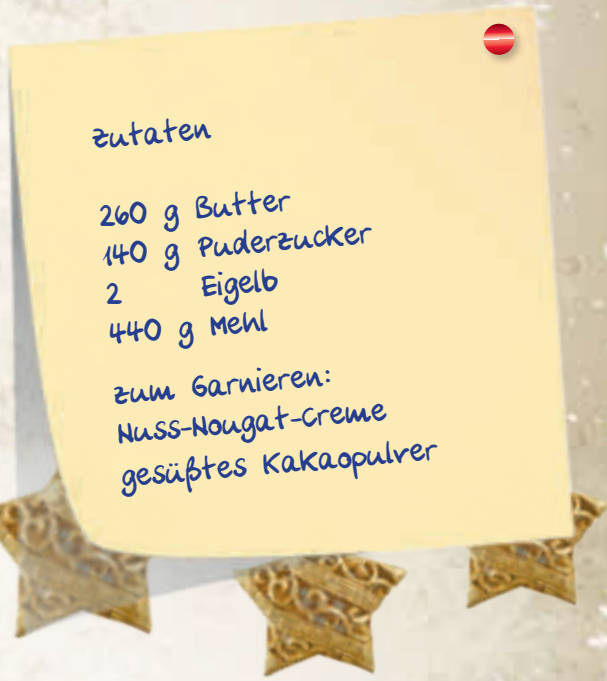 Zutaten
260 g Butter
140 g Puderzucker
2 Eigelb
440 g Mehl
zum Garnieren:
Nuss-Nougat-Creme
gesüßtes Kakaopulver